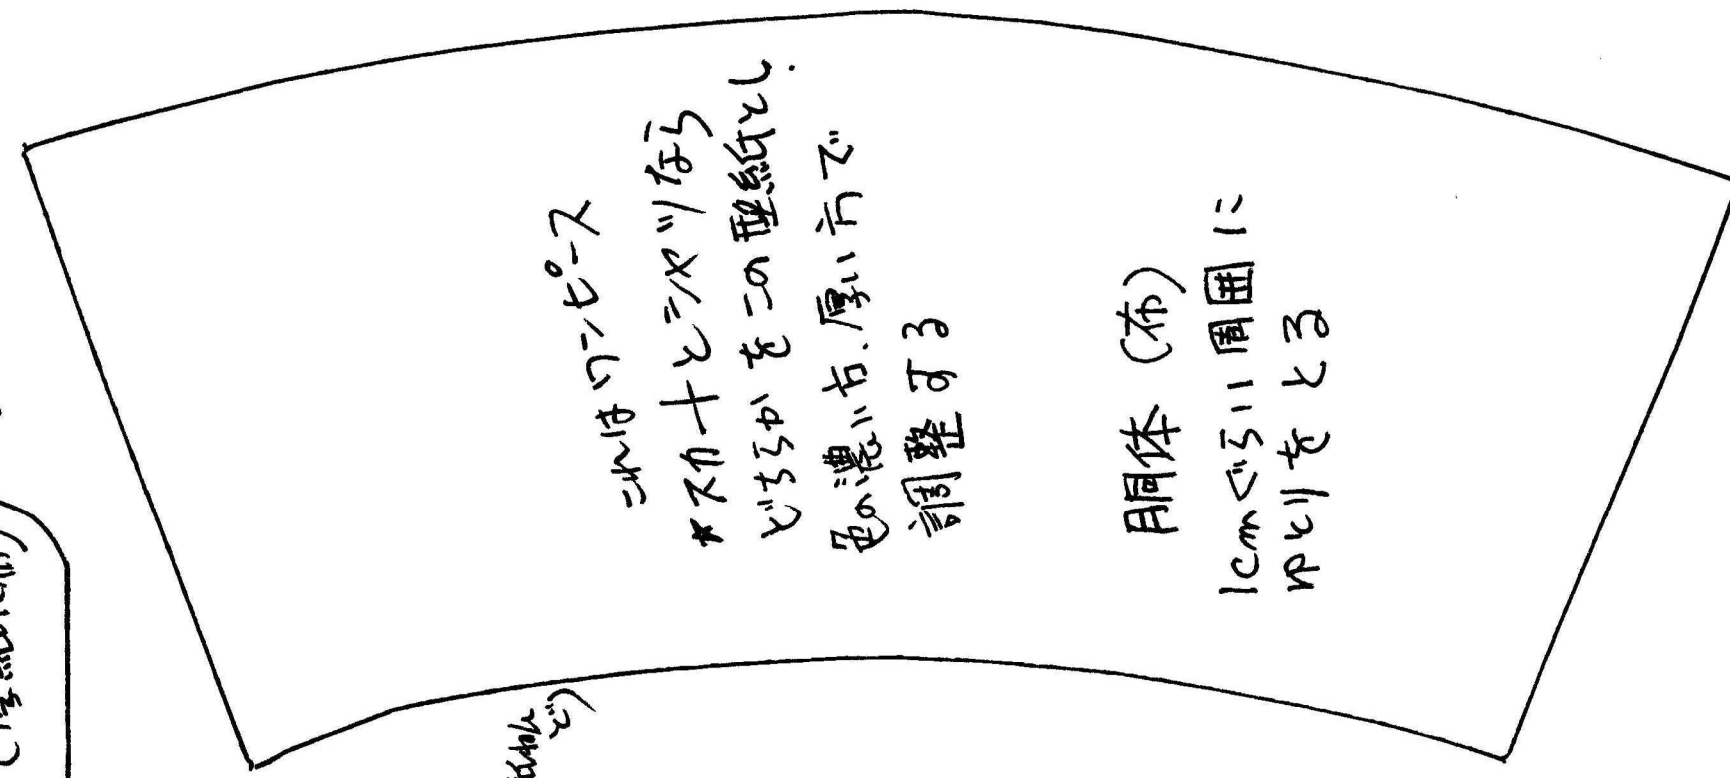 これはワンピース
*スカートとシャツなら
どちらかをこの型紙とし.
色の濃い方.厚い方で
調整する
胴体(布)
1cmぐらい周囲に
ゆとりをとる